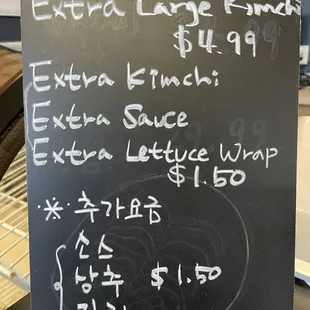 Extra Large Kimchi
$4.99
Extra Kimchi
Extra Sauce
Extra Lettuce Wrap
$1.50
※ 추가요금
소스
상추 $1.50